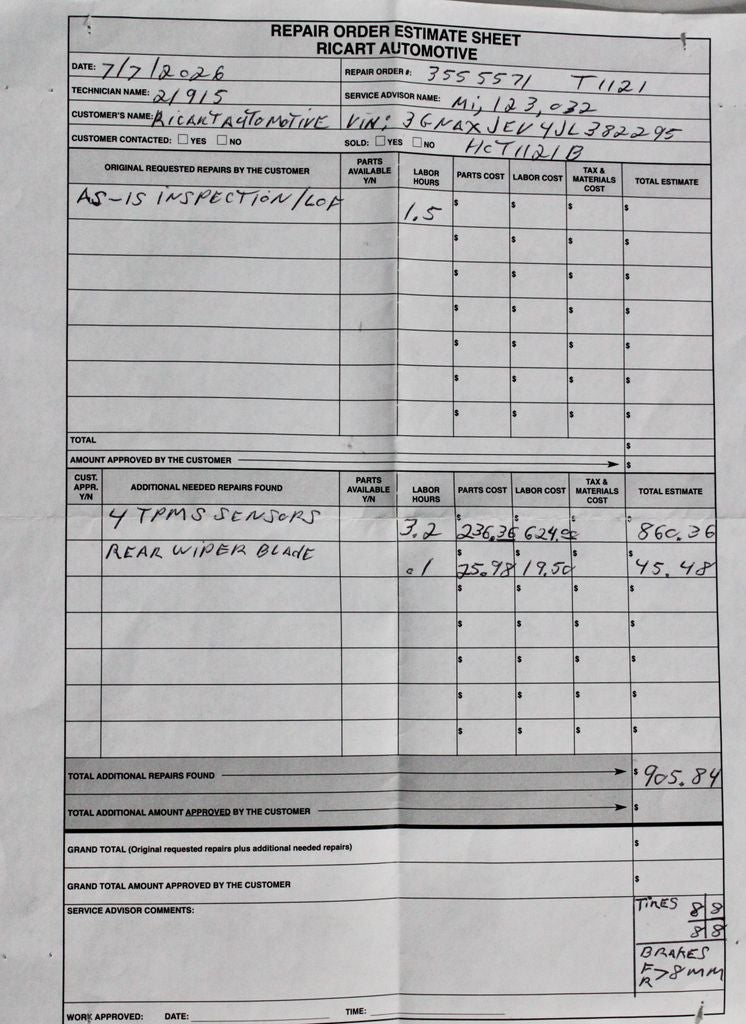 REPAIR ORDER ESTIMATE SHEET
RICART AUTOMOTIVE
DATE: 7/7/2026 REPAIR ORDER #: 3555571 T1121
TECHNICIAN NAME: 21915 SERVICE ADVISOR NAME: Mi, 123,032
CUSTOMER'S NAME: RICART AUTOMOTIVE VIN; 3GNAXJEV4JL382295
CUSTOMER CONTACTED: YES NO SOLD: YES NO HCT1121B
ORIGINAL REQUESTED REPAIRS BY THE CUSTOMER PARTS AVAILABLE Y/N LABOR HOURS PARTS COST LABOR COST TAX & MATERIALS COST TOTAL ESTIMATE
AS-IS INSPECTION/LOF 1.5 $ $ $ $
$ $ $ $
$ $ $ $
$ $ $ $
$ $ $ $
$ $ $ $
$ $ $ $
TOTAL $
AMOUNT APPROVED BY THE CUSTOMER $
CUST. APPR. Y/N ADDITIONAL NEEDED REPAIRS FOUND PARTS AVAILABLE Y/N LABOR HOURS PARTS COST LABOR COST TAX & MATERIALS COST TOTAL ESTIMATE
4 TPMS SENSORS 3.2 $ 236.36 $ 624.00 $ $ 860.36
REAR WIPER BLADE .1 $ 25.98 $ 19.50 $ $ 45.48
$ $ $ $
$ $ $ $
$ $ $ $
$ $ $ $
$ $ $ $
TOTAL ADDITIONAL REPAIRS FOUND $ 905.84
TOTAL ADDITIONAL AMOUNT APPROVED BY THE CUSTOMER $
GRAND TOTAL (Original requested repairs plus additional needed repairs) $
GRAND TOTAL AMOUNT APPROVED BY THE CUSTOMER $
SERVICE ADVISOR COMMENTS: TIRES 8 8
8 8
BRAKES
F
R >8MM
WORK APPROVED: DATE: TIME: